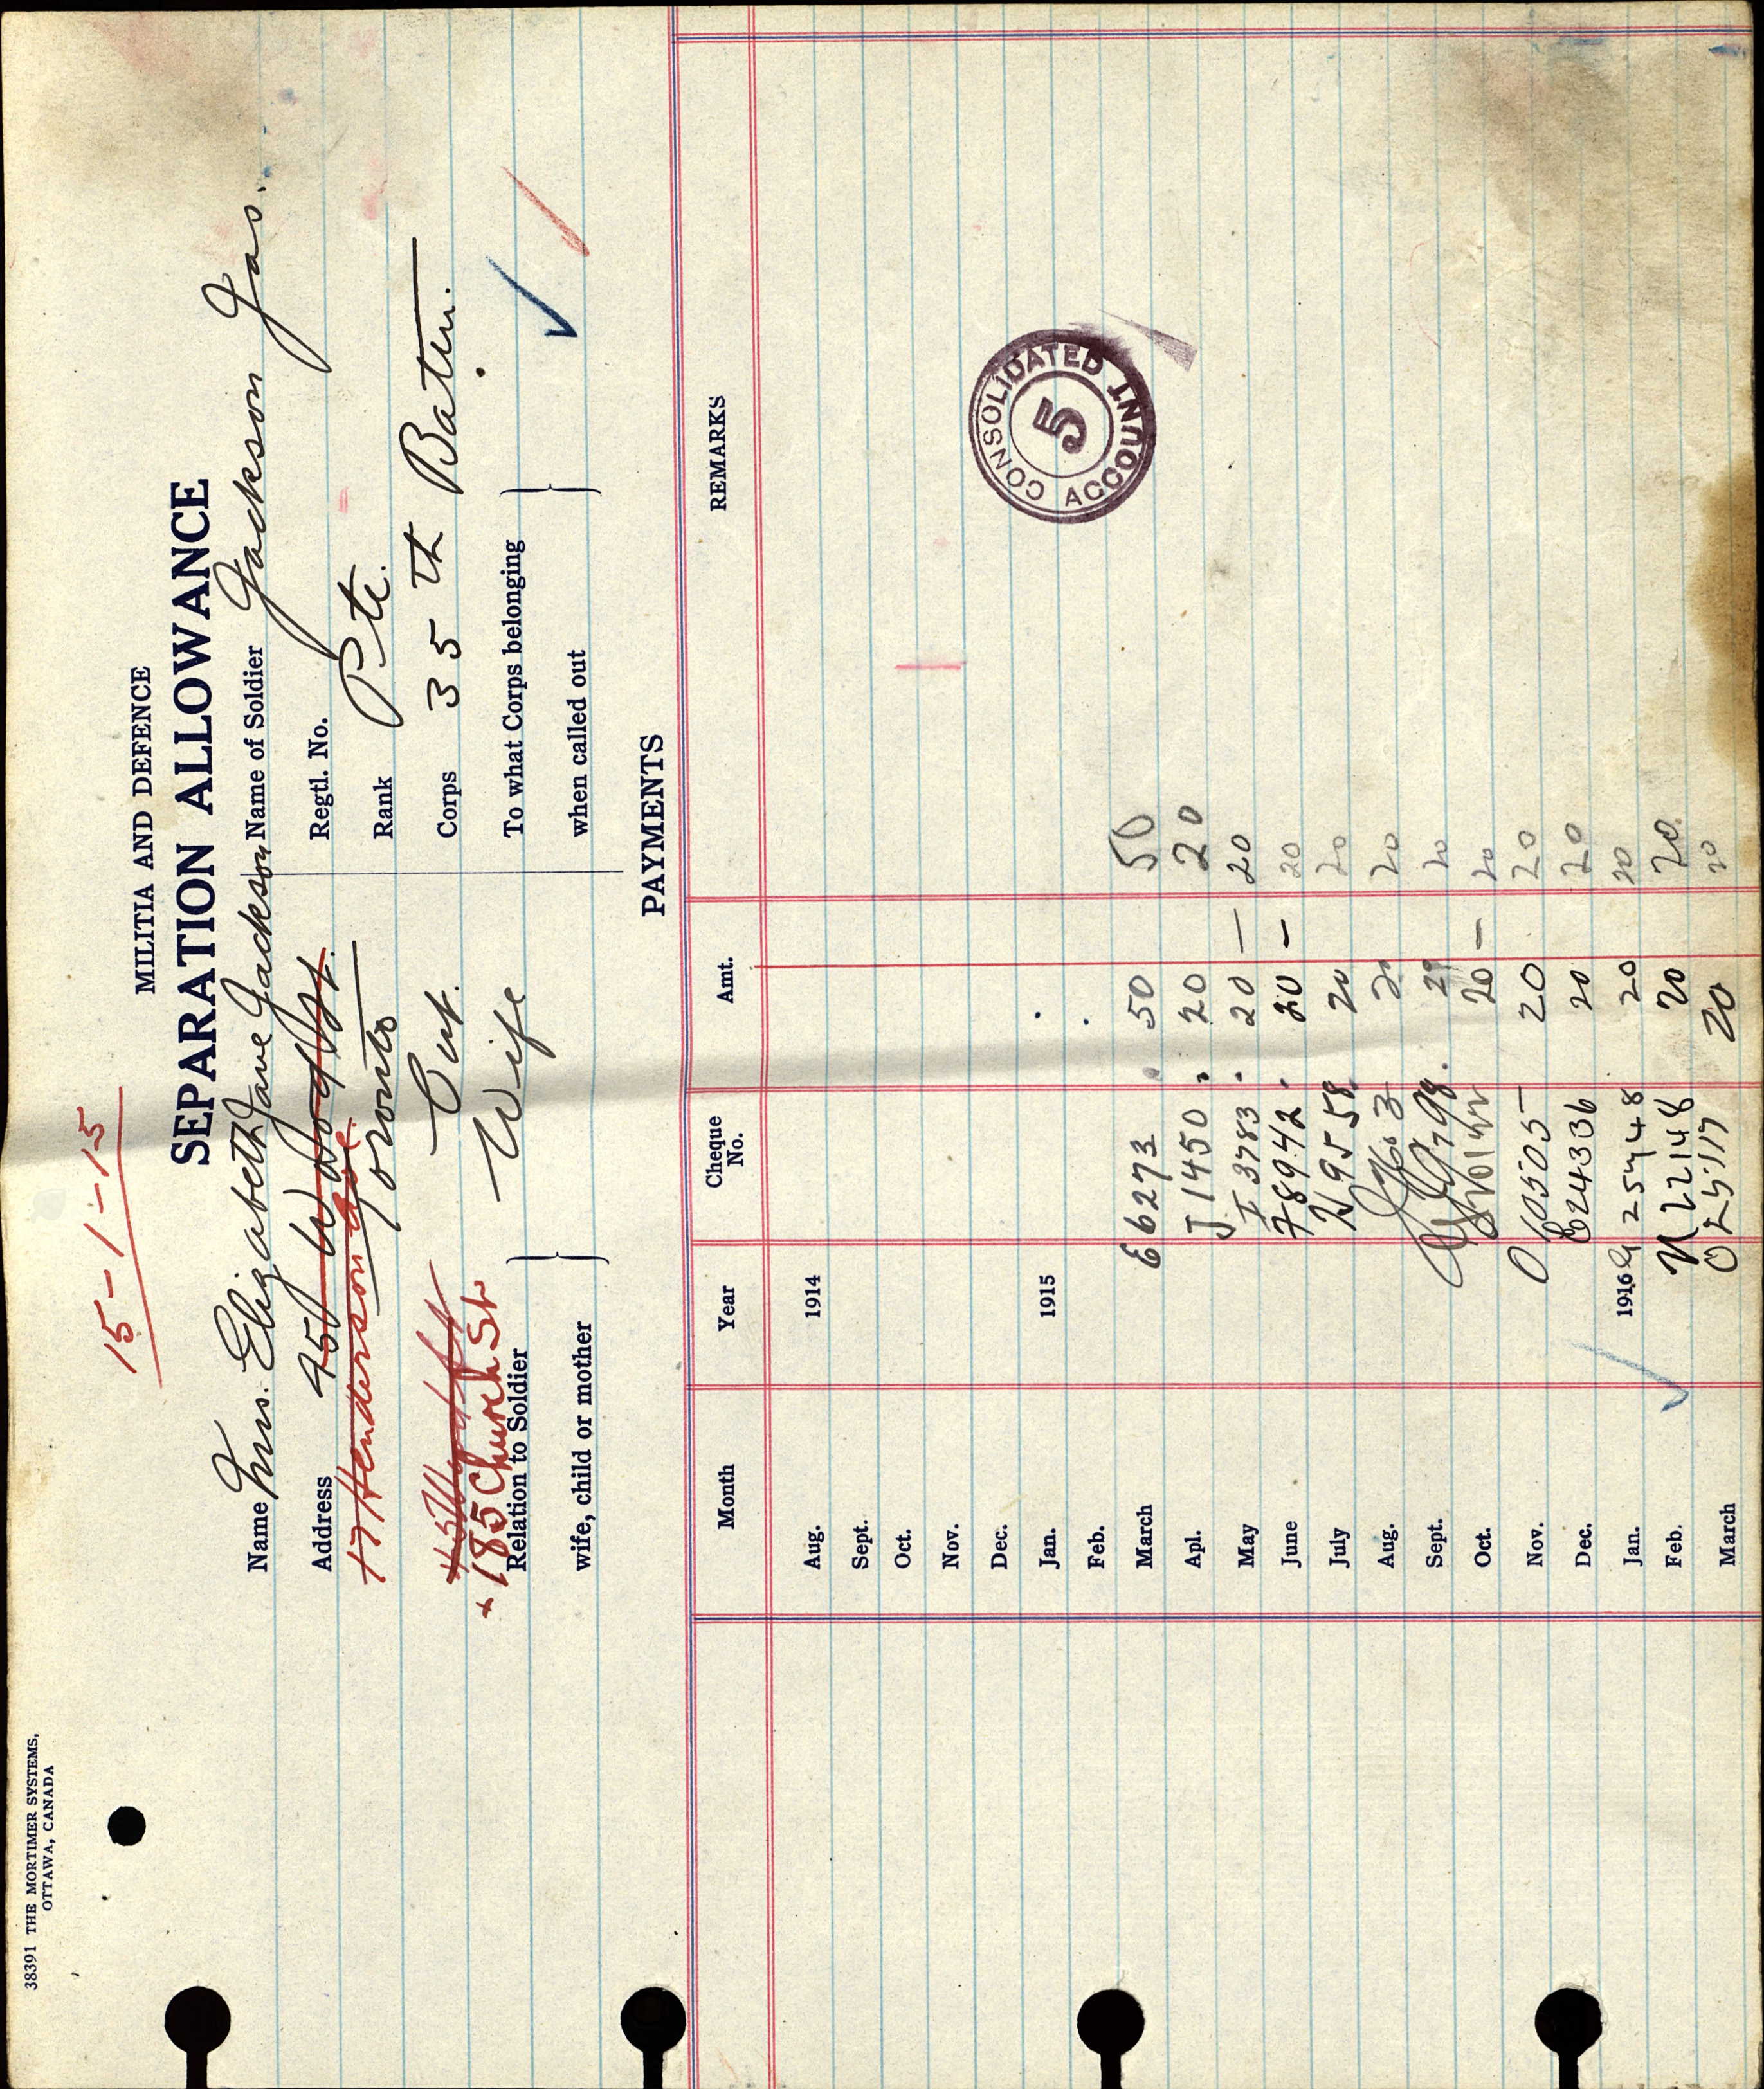 38391 THE MORTIMER SYSTEMS,
OTTAWA, CANADA
15-1-15
MILITIA AND DEFENCE
SEPARATION ALLOWANCE
Name Mrs. Elizabeth Jane Jackson
Address 45
17 Henderson ave.
Toronto
Ont.
185 Church St
Relation to Soldier
wife, child or mother
Wife
Name of Soldier Jackson Jas.
Regtl. No.
Rank Pte.
Corps 35 th Battn.
To what Corps belonging
when called out
PAYMENTS
Month Year Cheque No. Amt. REMARKS
Aug. 1914
Sept.
Oct.
Nov.
Dec.
Jan. 1915
Feb.
March E 6273 50 50
Apl. J 1450 20 20
May I 3783 20 — 20
June 78942 20 — 20
July 20 20
Aug. 20 20
Sept. 20 20
Oct. 20 — 20
Nov. O 10505 20 20
Dec. B24336 20 20
Jan. 1916 20 20
Feb. N 22148 20 20
March 20 20
CONSOLIDATED ACCOUNT
5